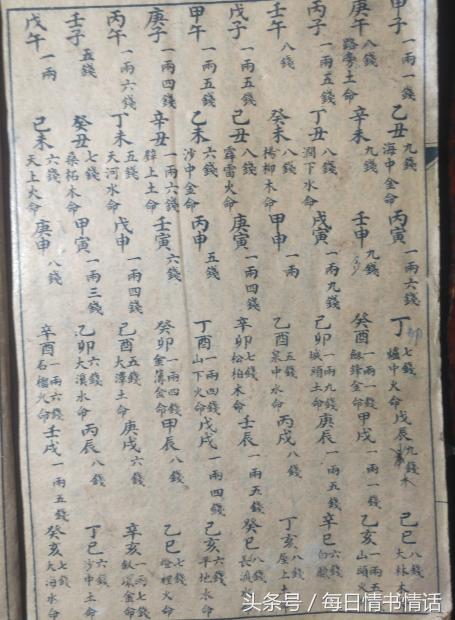 甲子 一兩一錢 乙丑 九錢 海中金命 丙寅 一兩六錢 丁卯 七錢 爐中火命 戊辰 九錢 木 己巳 八錢 大林木
庚午 八錢 路旁土命 辛未 九錢 壬申 九錢 癸酉 一兩一錢 劍鋒金命 甲戌 一兩一錢 乙亥 一兩五 山頭火
丙子 一兩五錢 丁丑 八錢 澗下水命 戊寅 一兩九錢 己卯 一兩九錢 城頭土命 庚辰 一兩五錢 辛巳 六錢 白臘
壬午 八錢 癸未 八錢 楊柳木命 甲申 一兩 乙酉 五錢 泉中水命 丙戌 八錢 丁亥 八錢 屋上土
戊子 一兩五錢 己丑 八錢 霹雷火命 庚寅 一兩四錢 辛卯 七錢 松柏木命 壬辰 一兩五錢 癸巳 八錢 長流
甲午 一兩五錢 乙未 六錢 沙中金命 丙申 五錢 丁酉 一兩四錢 山下火命 戊戌 一兩四錢 己亥 六錢 平地木命
庚子 一兩四錢 辛丑 一兩六錢 壁上土命 壬寅 六錢 癸卯 一兩四錢 金簿金命 甲辰 八錢 乙巳 七錢 燈裡火命
丙午 一兩六錢 丁未 五錢 天河水命 戊申 一兩四錢 己酉 五錢 大澤土命 庚戌 六錢 辛亥 一兩七錢 釵環金命
壬子 五錢 癸丑 七錢 桑柘木命 甲寅 一兩三錢 乙卯 六錢 大溪水命 丙辰 八錢 丁巳 六錢 沙中土命
戊午 一兩 己未 六錢 天上火命 庚申 八錢 辛酉 一兩六錢 石榴火命 壬戌 一兩五錢 癸亥 七錢 大海水命
头条号 / 每日情书情话